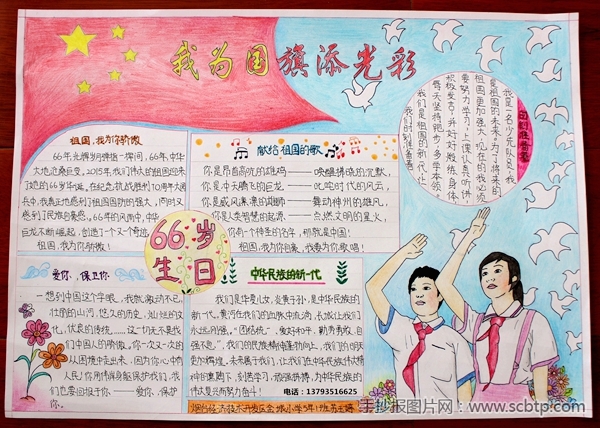 我为国旗添光彩
祖国,我为你骄傲
66年光辉岁月弹指一挥间,66年中华
大地沧桑巨变,2015年我们伟大的祖国迎来
了她的66岁华诞,在纪念抗战胜利70周年大阅
兵中,我真正地感到了祖国国防的强大,同时又
感到了民族自豪感,66年的风雨中,中华
巨龙不断崛起,创造了一个又一个奇迹
祖国,我为你骄傲!
献给祖国的歌
你是昂首高吭的雄鸡——唤醒拂晓的沉默,
你是冲天腾飞的巨龙——叱咤时代的风云,
你是威风凛凛的雄狮——舞动神州的雄风,
你是人类智慧的起源——点燃文明的星火,
你有一个神圣的名字,那就是中国!
祖国,我为你自豪,我要为你歌唱!
66岁
生日
爱你、保卫你
一想到中国这个字眼,我就激动不已,
壮丽的山河,悠久的历史,灿烂的文
化,优良的传统……这一切无不是我
们中国人的骄傲,你一次又一次的
从困境中走出来,因为你心中有
人民!你用伟岸身躯保护我们,我
们也要回报于你——爱你、保护
你。
中华民族的新一代
我们是华夏儿女,炎黄子孙,是中华民族的新
一代,黄河在我们的血脉中流淌,长城让我们
永远刚强。“团结统一,爱好和平,勤劳勇敢,自
强不息”,我们的民族精神蓬勃向上,我们的明天
更加辉煌,未来属于我们,让我们在中华民族伟大精
神的熏陶下,刻苦学习,顽强拼搏,为中华民族的
伟大复兴而努力奋斗!
电话:13793516625
烟台经济技术开发区金城小学5年1班
时刻准备着
我是一名少先队员,我
是祖国的未来,为了将来的
祖国更加强大,现在的我必须
要努力学习,上课认真听讲,
积极发言,并好好锻炼身体,
每天坚持跑步,多学本领。
我们是祖国的新一代,让
我们时刻准备着
手抄报图片网:www.scbtp.com